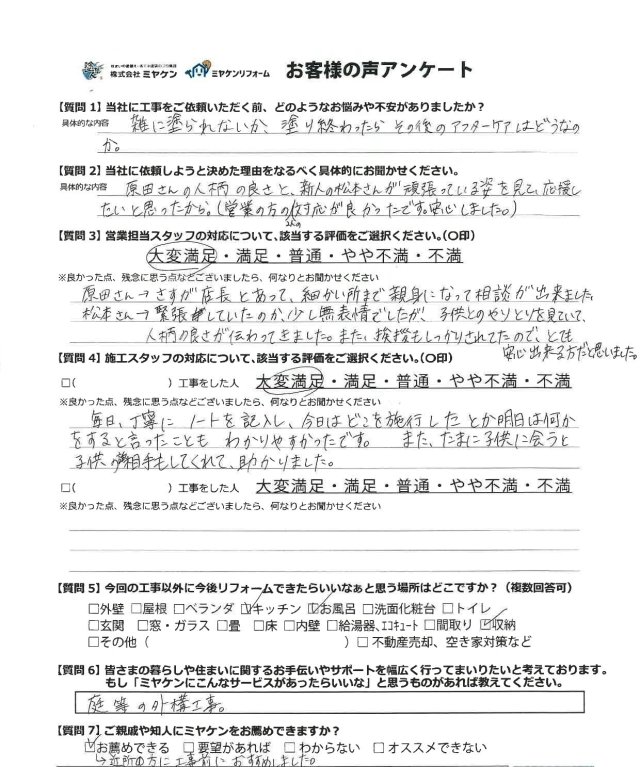 住まいの塗替え・省エネ塗装のプロ集団
株式会社 ミヤケン ミヤケンリフォーム お客様の声アンケート
【質問 1】当社に工事をご依頼いただく前、どのようなお悩みや不安がありましたか？
具体的な内容 雑に塗られないか、塗り終わったら その後のアフターケアはどうなの
か。
【質問 2】当社に依頼しようと決めた理由をなるべく具体的にお聞かせください。
具体的な内容 原田さんの人柄の良さと、新人の松本さんが頑張っている姿を見て、応援し
たいと思ったから。(営業の方の対応が良かったです。安心しました。)
2人の
【質問 3】営業担当スタッフの対応について、該当する評価をご選択ください。(〇印)
大変満足・満足・普通・やや不満・不満
※良かった点、残念に思う点などございましたら、何なりとお聞かせください
原田さん→さすが店長とあって、細かい所まで親身になって相談が出来ました。
松本さん→緊張していたのか、少し無表情でしたが、子供とのやりとりを見ていて、
人柄の良さが伝わってきました。また、挨拶もしっかりされてたので、とても
安心出来る方だと思いました。
【質問 4】施工スタッフの対応について、該当する評価をご選択ください。(〇印)
□( )工事をした人 大変満足・満足・普通・やや不満・不満
※良かった点、残念に思う点などございましたら、何なりとお聞かせください
毎日、丁寧にノートを記入し、今日はどこを施行したとか明日は何か
をすると言ったことも わかりやすかったです。 また、たまに子供に会うと
子供の相手もしてくれて、助かりました。
□( )工事をした人 大変満足・満足・普通・やや不満・不満
※良かった点、残念に思う点などございましたら、何なりとお聞かせください
【質問 5】今回の工事以外に今後リフォームできたらいいなぁと思う場所はどこですか？（複数回答可）
□外壁 □屋根 □ベランダ ☑キッチン ☑お風呂 □洗面化粧台 □トイレ
□玄関 □窓・ガラス □畳 □床 □内壁 □給湯器、エコキュート □間取り ☑収納
□その他（ ）□不動産売却、空き家対策など
【質問 6】皆さまの暮らしや住まいに関するお手伝いやサポートを幅広く行ってまいりたいと考えております。
もし「ミヤケンにこんなサービスがあったらいいな」と思うものがあれば教えてください。
庭等の外構工事。
【質問 7】ご親戚や知人にミヤケンをお薦めできますか？
☑お薦めできる □要望があれば □わからない □オススメできない
↳近所の方に工事前におすすめしました。